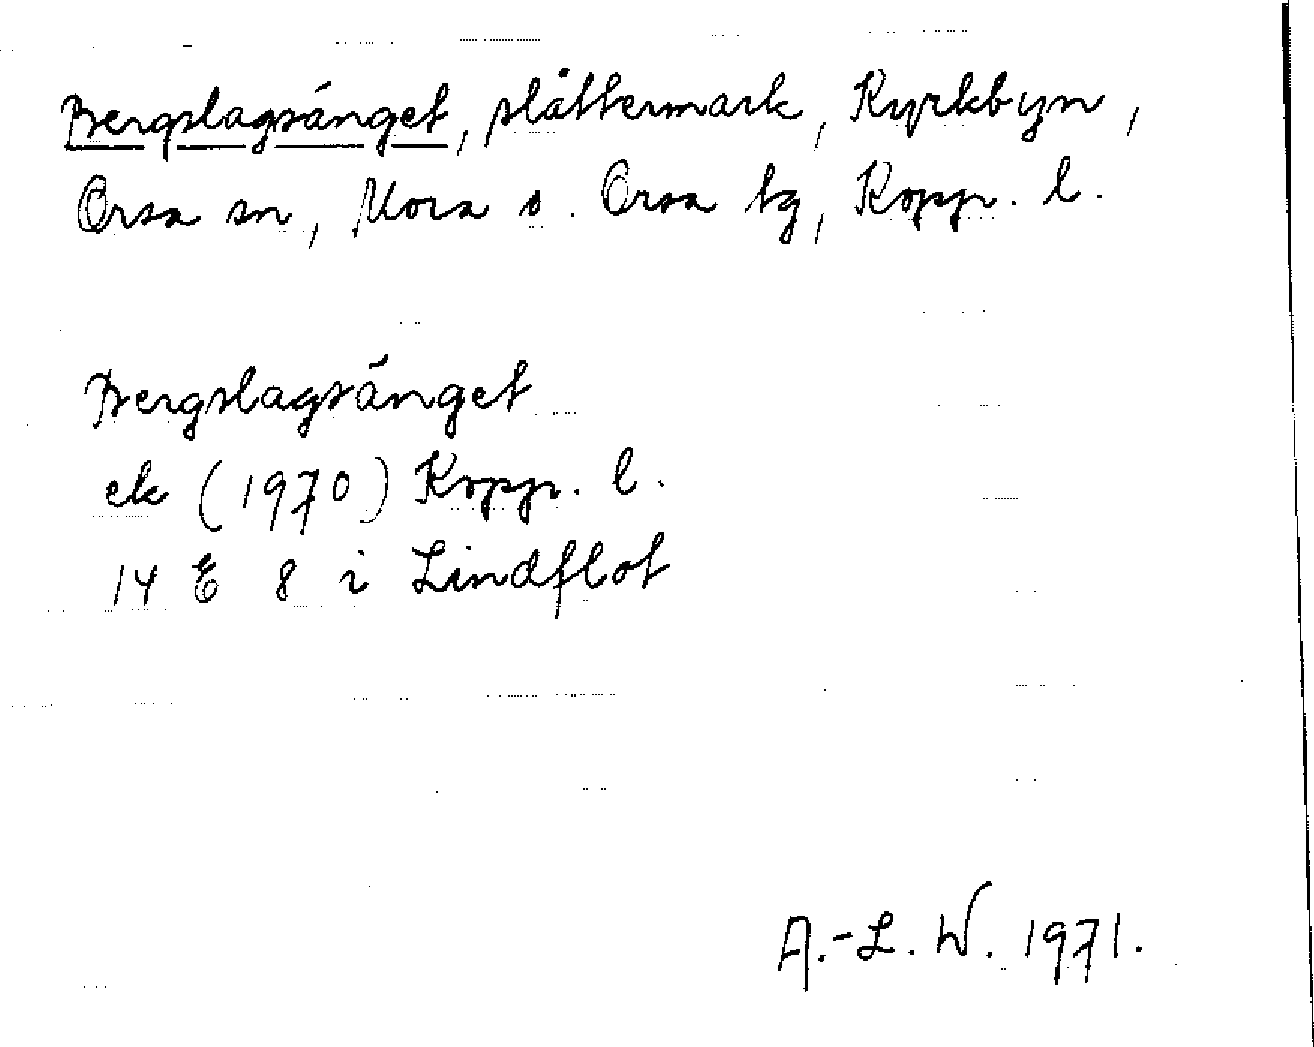 Bergslagsänget, slåttermark, Kyrkbyn,
Orsa sn, Mora o. Orsa tg, Kopp. l.
Bergslagsänget
ek (1970) Kopp. l.
14 E 8 i Lindflot
A.-L. W. 1971.